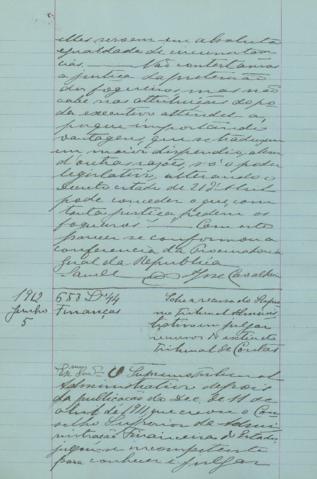 elles serem em absoluta
egualdade de circunstan
cias. — Não contestâmos
a justiça da pretensão
dos fogueiros, mas não
cabe nas attribuições do po
der executivo attendel-a,
porque importando
vantagens que se traduzem
em maior dispendio, alem
d'outras razões, só o poder
legislativo, alterando o
Decreto citado de
pode conceder o que, com
tanta justiça, pedem os
fogueiros. — Com este
parecer se conformou a
conferencia da Procuradoria
Geral da Republica
José
1912
Junho
5
653 Lº 44
Finanças
Sobre a recusa do Supre
mo Tribunal Adminis
trativo em julgar
recursos do extincto
Tribunal de Contas
O Supremo Tribunal
Administrativo depois
da publicação do Dec. de 11 de
abril de 1911, que creou o Con
selho Superior da Admi
nistração Financeira do Estado,
julgou-se incompetente
para conhecer e julgar